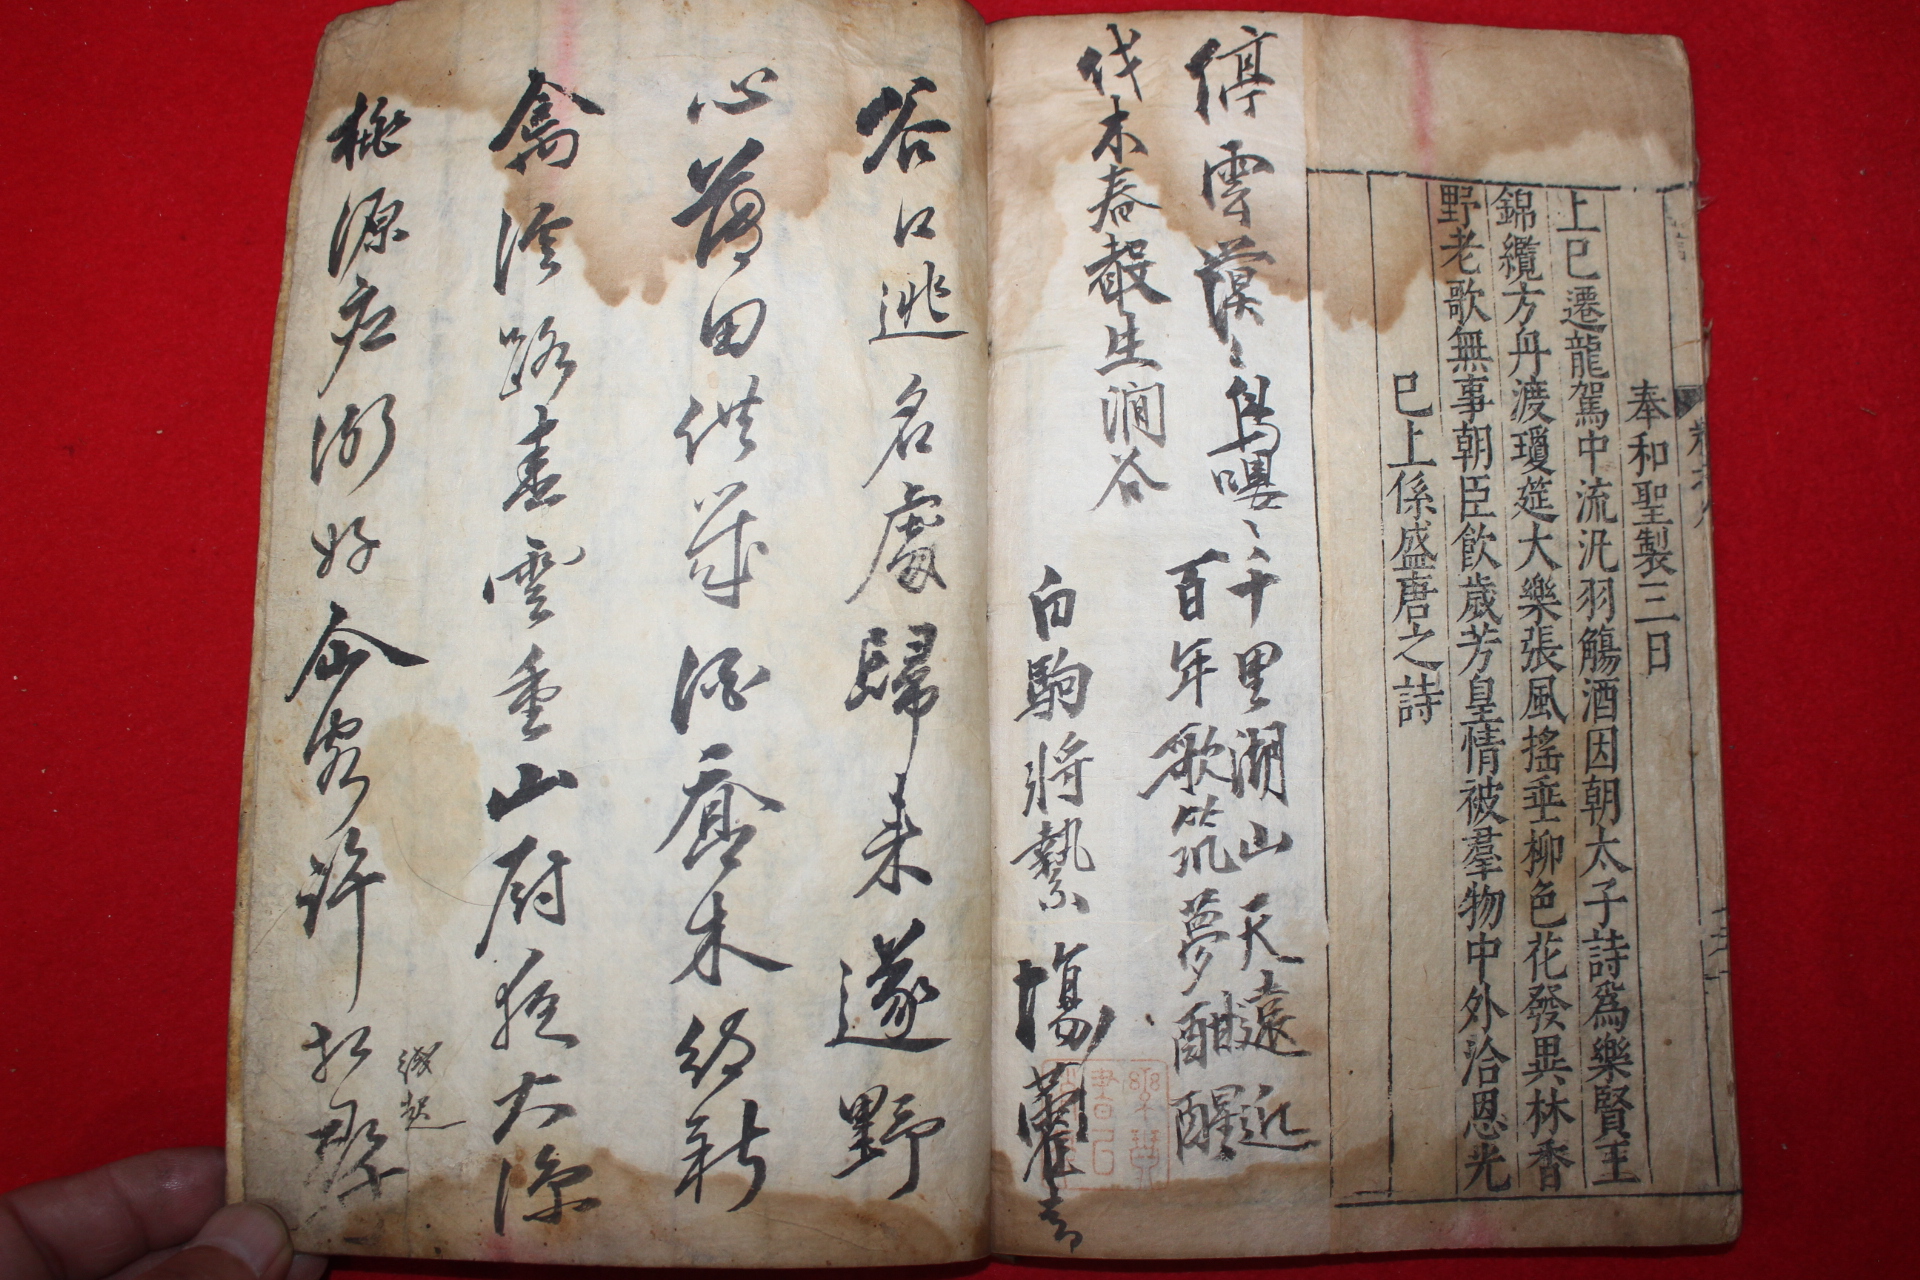 奉和聖製三日
上巳遷龍駕中流汎羽觴酒因朝太子詩爲樂賢王
錦纜方舟渡瓊筵大樂張風搖垂柳色花發異林香
野老歌無事朝臣飲歲芳皇情被羣物中外洽恩光
已上係盛唐之詩
停雲漠〻鳥嚶〻千里湖山天遠近
百年歌筑夢酣醒
伐木春聲生澗谷
白駒將縶場藿
谷口逃名處歸來遂野
心薄田供歲酒喬木待新
禽溪路春雲重山厨夜火深
桃源應漸好仙客許相尋
錢起